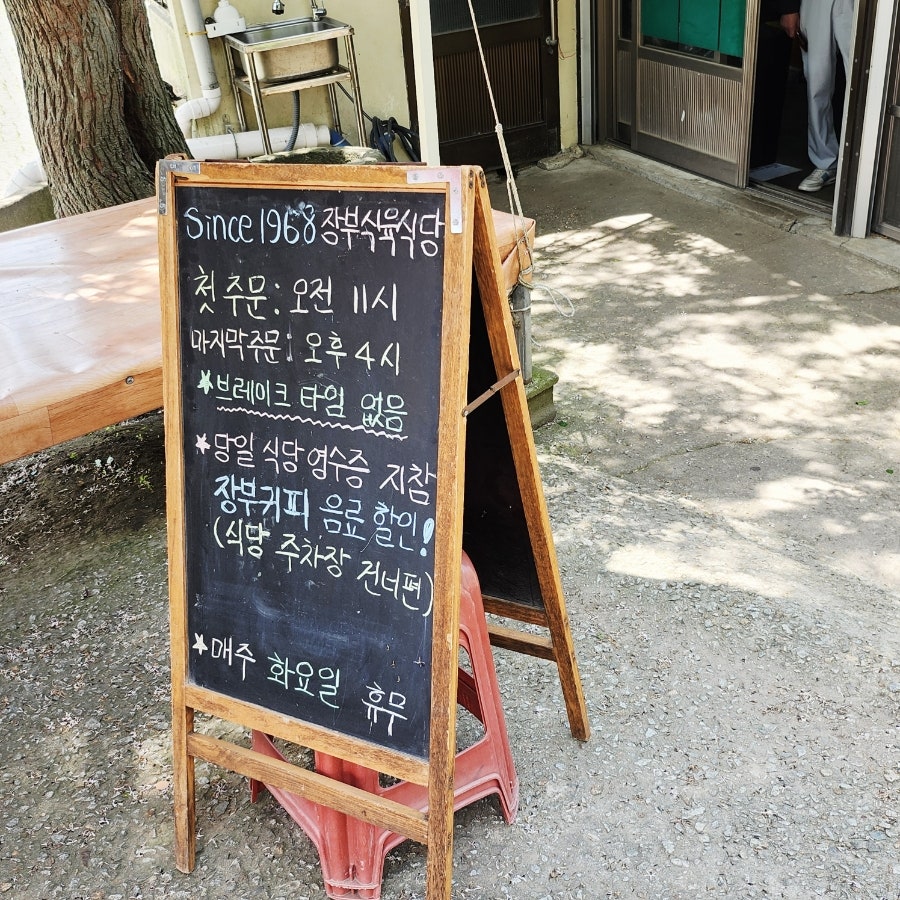 Since 1968 장부식육식당
첫 주문 : 오전 11시
마지막주문 : 오후 4시
★브레이크 타임 없음
★당일 식당 영수증 지참
장부커피 음료 할인!
(식당 주차장 건너편)
★매주 화요일 휴무